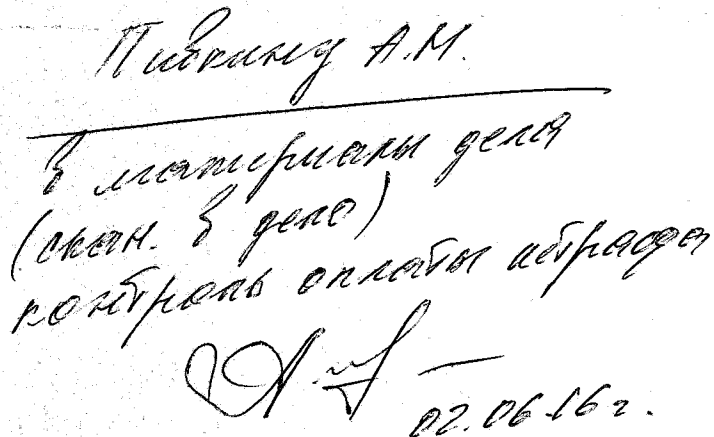 Пивкину А.М.
В материалы дела
(скан. в дело)
контроль оплаты штрафа
02.06.16г.